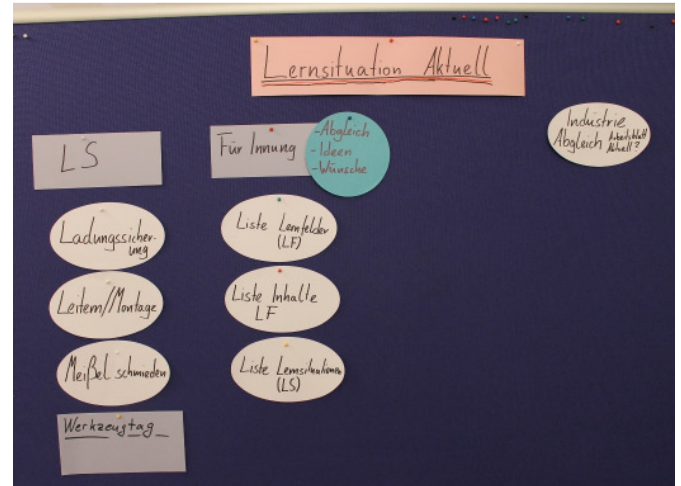 Lernsituation Aktuell
LS
Ladungssicher-
ung
Leitern//Montage
Meißel schmieden
Werkzeugtag
Für Innung
-Abgleich
-Ideen
-Wünsche
Liste Lernfelder
(LF)
Liste Inhalte
LF
Liste Lernsituationen
(LS)
Industrie
Abgleich Arbeitsblatt
Aktuell?